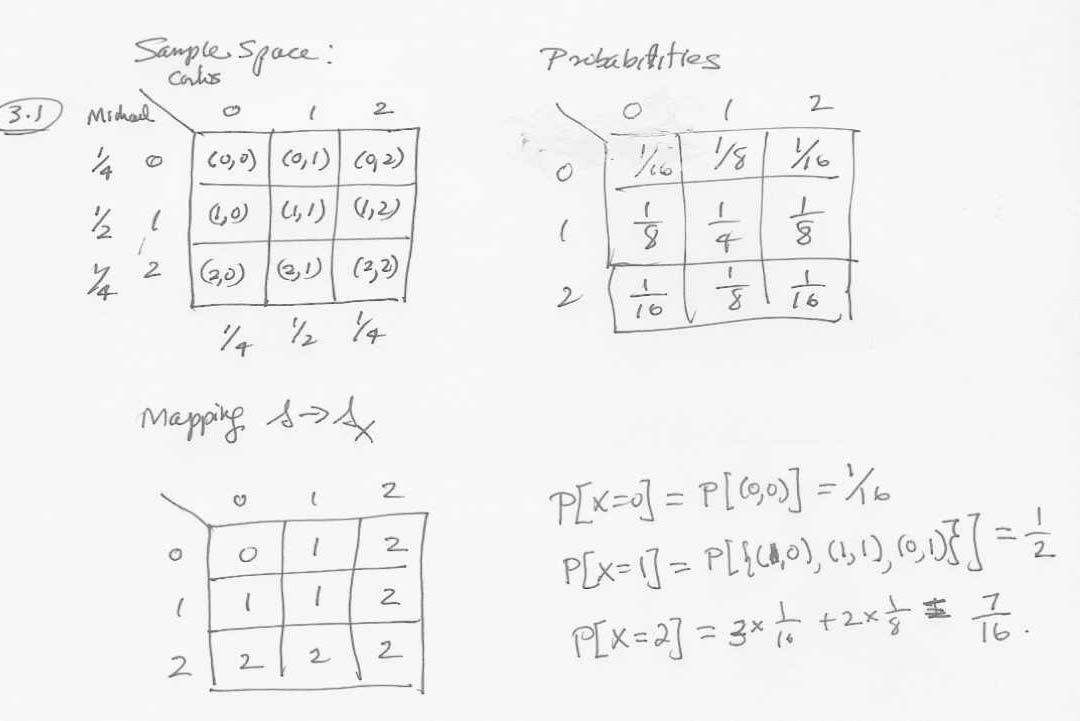 Sample Space:
Carlos
3.1 Michael 0 1 2
1/4 0 (0,0) (0,1) (0,2)
1/2 1 (1,0) (1,1) (1,2)
1/4 2 (2,0) (2,1) (2,2)
1/4 1/2 1/4
Probabilities
0 1 2
0 1/16 1/8 1/16
1 1/8 1/4 1/8
2 1/16 1/8 1/16
Mapping S→S_X
0 1 2
0 0 1 2
1 1 1 2
2 2 2 2
P[X=0] = P[(0,0)] = 1/16
P[X=1] = P[{(1,0), (1,1), (0,1)}] = 1/2
P[X=2] = 3 × 1/16 + 2 × 1/8 = 7/16.